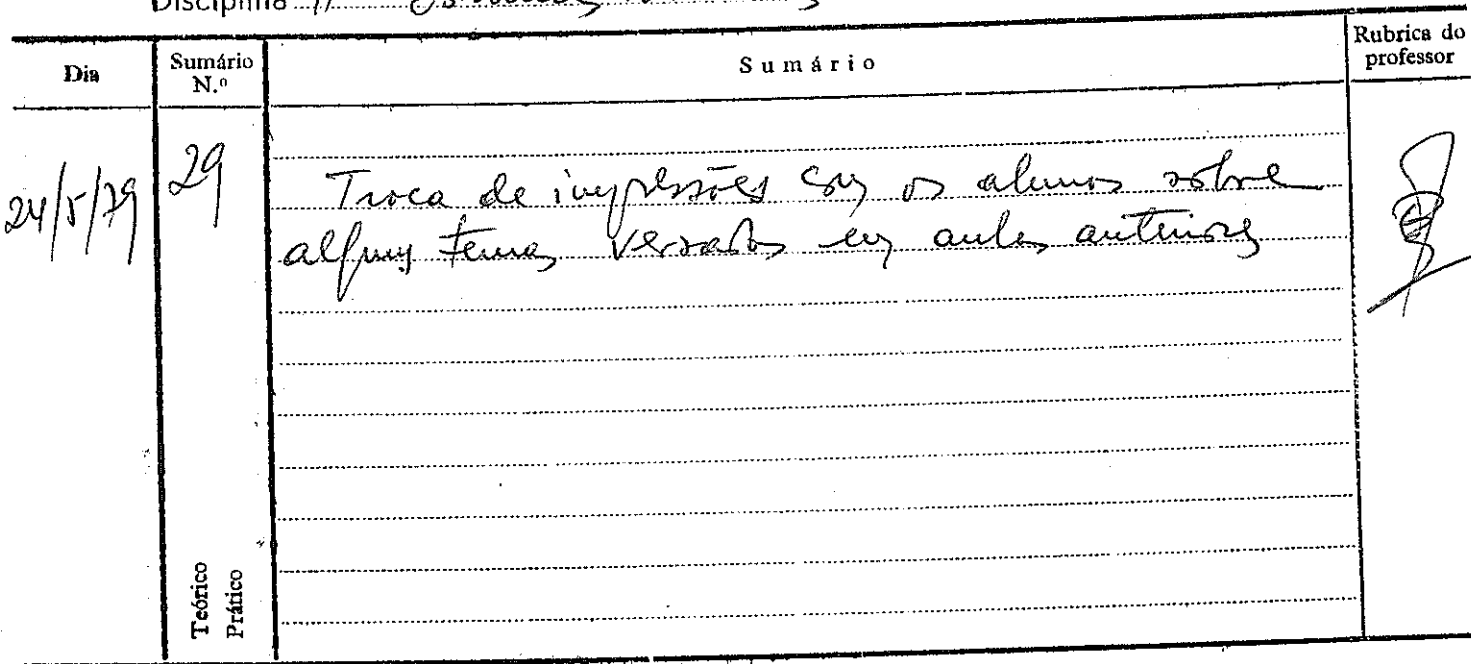 Disciplina
Dia
Sumário N.º
Sumário
Rubrica do professor
24/5/79
29
Troca de impressões com os alunos sobre
alguns temas versados em aulas anteriores
Teórico
Prático